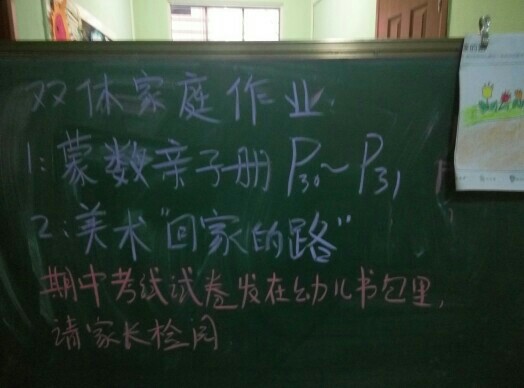 双休家庭作业
1:蒙数亲子册 P30~P31
2:美术"回家的路"
期中考试试卷发在幼儿书包里,
请家长检阅